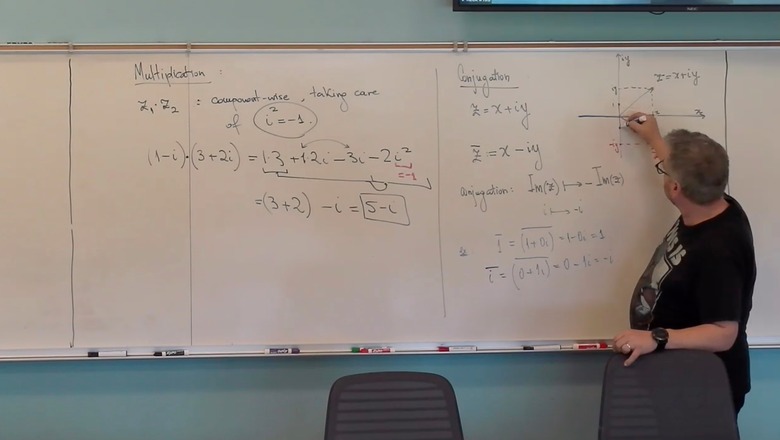 Multiplication :
z₁·z₂ : component-wise, taking care
of i²=-1.
(1-i)·(3+2i) = 1·3+1·2i-3i-2i²
=-1
=(3+2) -i = 5-i
Conjugation
z=x+iy
z̅=x-iy
Conjugation: Im(z) ↦ - Im(z)
i ↦ -i
1̅ = \overline{(1+0i)}=1-0i=1
i̅ = \overline{(0+1i)}=0-1i=-i
iy
z=x+iy
y
x
-y